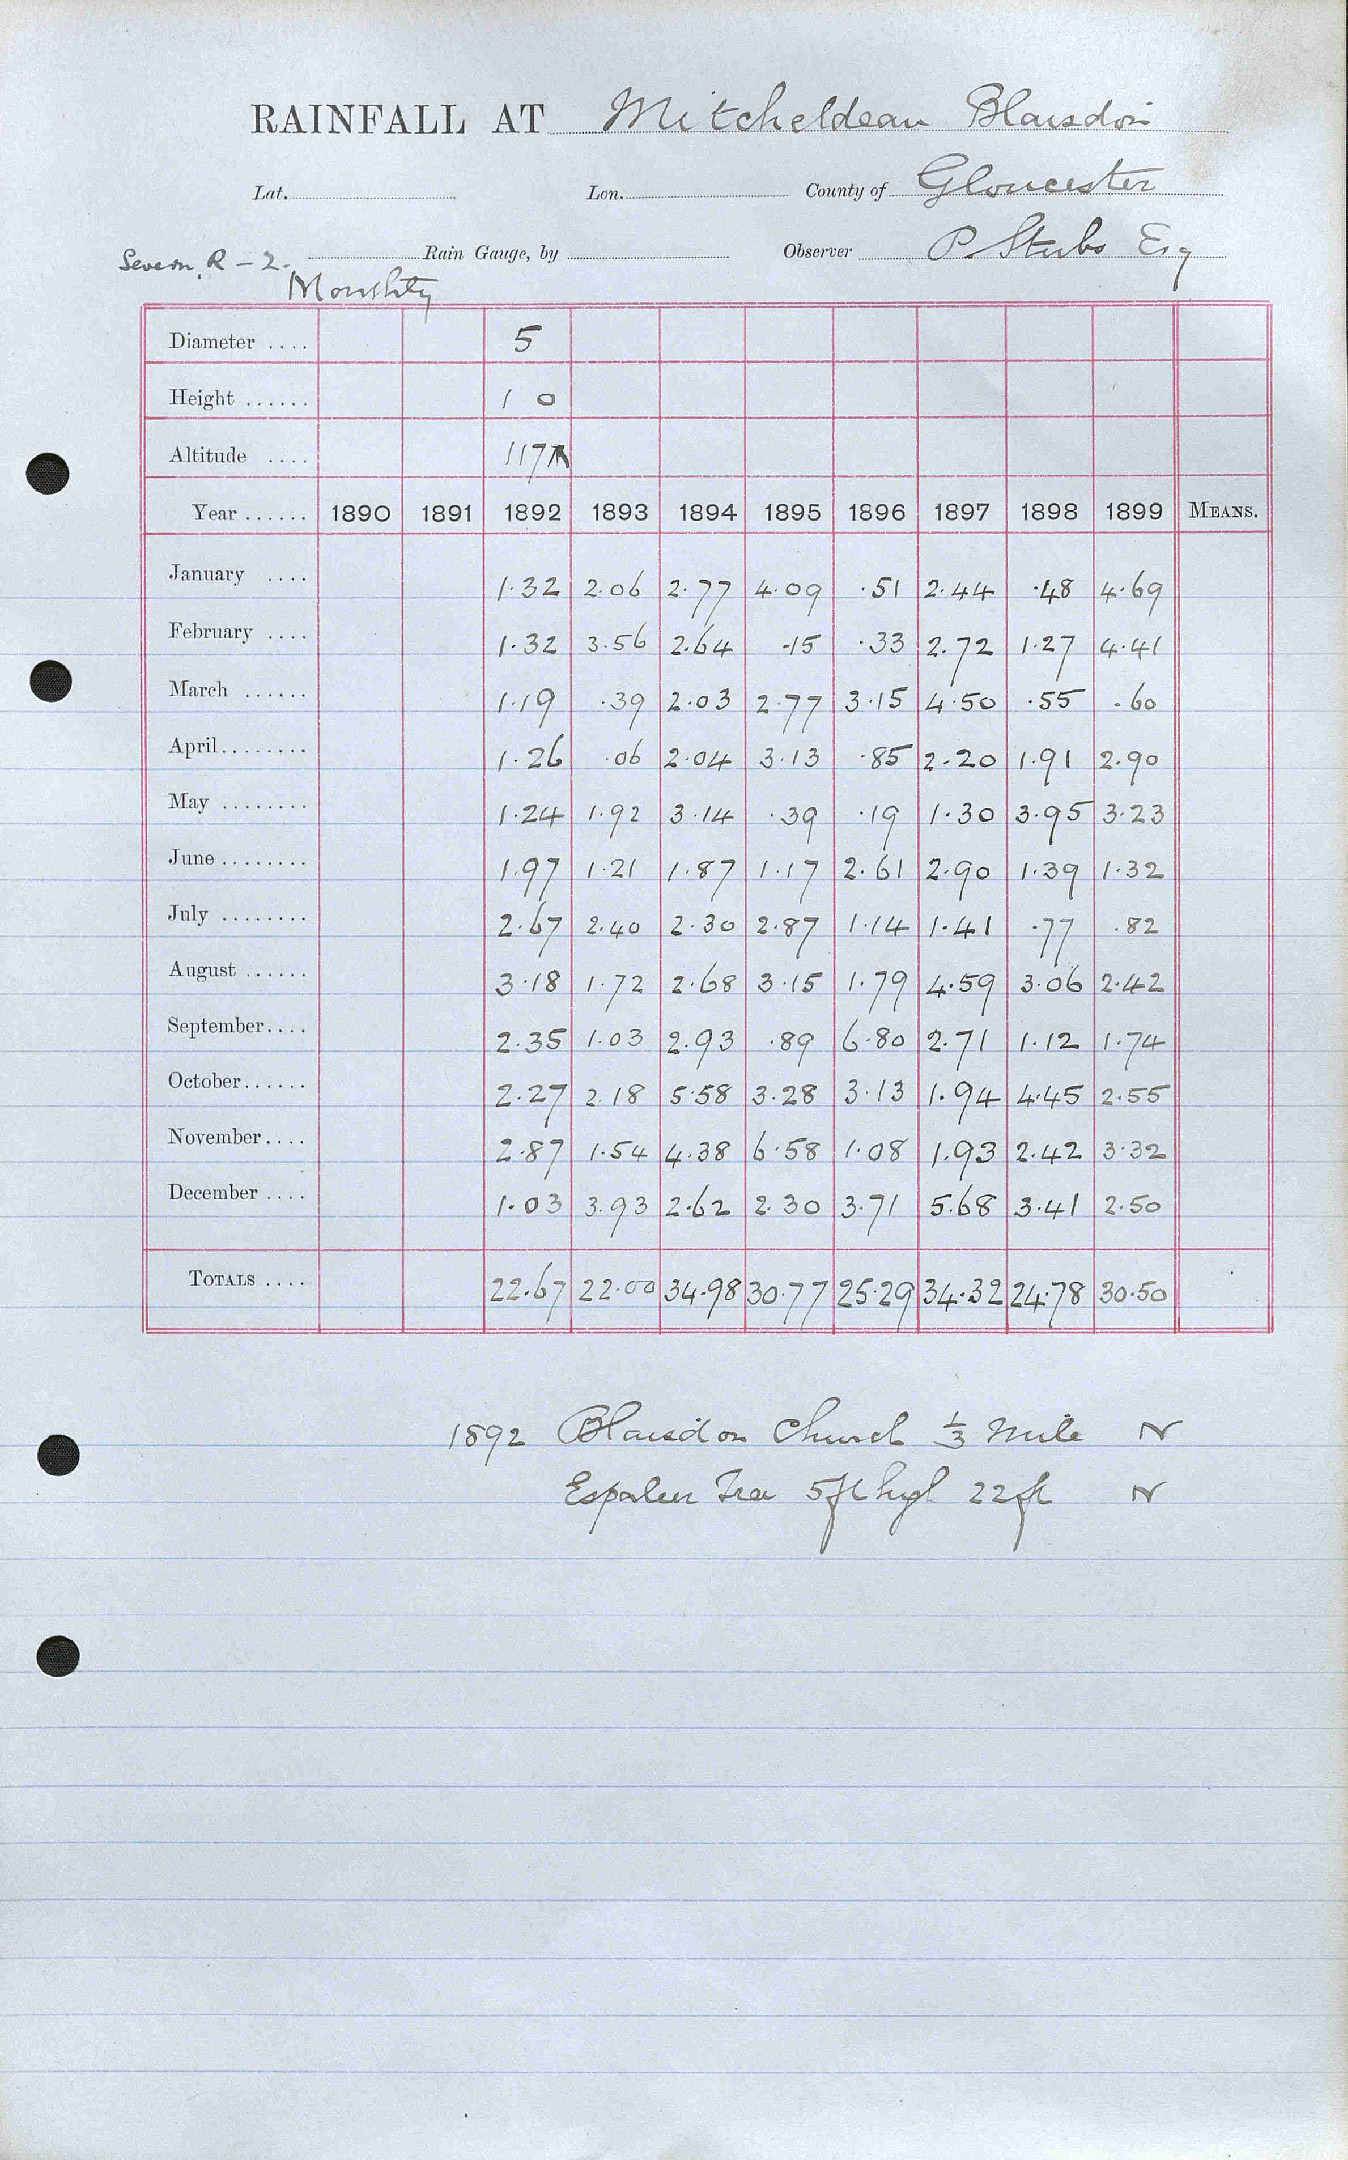 RAINFALL AT Mitcheldean Blaisdon
Lat. Lon. County of Gloucester
Severn, R - 2. Rain Gauge, by Observer P Stubs Esq
Monthly
Diameter .... 5
Height ...... 1 0
Altitude .... 117
Year ...... 1890 1891 1892 1893 1894 1895 1896 1897 1898 1899 MEANS.
January .... 1.32 2.06 2.77 4.09 .51 2.44 .48 4.69
February .... 1.32 3.56 2.64 .15 .33 2.72 1.27 4.41
March ...... 1.19 .39 2.03 2.77 3.15 4.50 .55 .60
April........ 1.26 .06 2.04 3.13 .85 2.20 1.91 2.90
May ........ 1.24 1.92 3.14 .39 .19 1.30 3.95 3.23
June ........ 1.97 1.21 1.87 1.17 2.61 2.90 1.39 1.32
July ........ 2.67 2.40 2.30 2.87 1.14 1.41 .77 .82
August ...... 3.18 1.72 2.68 3.15 1.79 4.59 3.06 2.42
September.... 2.35 1.03 2.93 .89 6.80 2.71 1.12 1.74
October...... 2.27 2.18 5.58 3.28 3.13 1.94 4.45 2.55
November.... 2.87 1.54 4.38 6.58 1.08 1.93 2.42 3.32
December .... 1.03 3.93 2.62 2.30 3.71 5.68 3.41 2.50
TOTALS .... 22.67 22.00 34.98 30.77 25.29 34.32 24.78 30.50
1892 Blaisdon Church 1/3 Mile N
Espalier Tree 5ft high 22ft N